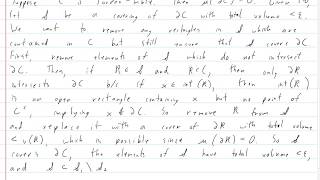 Suppose C is Jordan-mble. Then μ(∂C) = 0. Given ε>0,
let 𝒜 be a covering of ∂C with total volume < ε.
We want to remove any rectangles in 𝒜 which are
contained in C but still ensure that 𝒜 covers ∂C
First, remove elements of 𝒜 which do not intersect
∂C. Then, if R ∈ 𝒜 and R⊂C, then only ∂R
intersects ∂C b/c if x ∈ int(R), then int(R)
is an open rectangle containing x but no point of
Cᶜ, implying x ∉ ∂C. So remove R from 𝒜
and replace it with a cover of ∂R with total volume
< v(R), which is possible since μ(∂R) = 0. So 𝒜
covers ∂C, the elements of 𝒜 have total volume < ε,
and